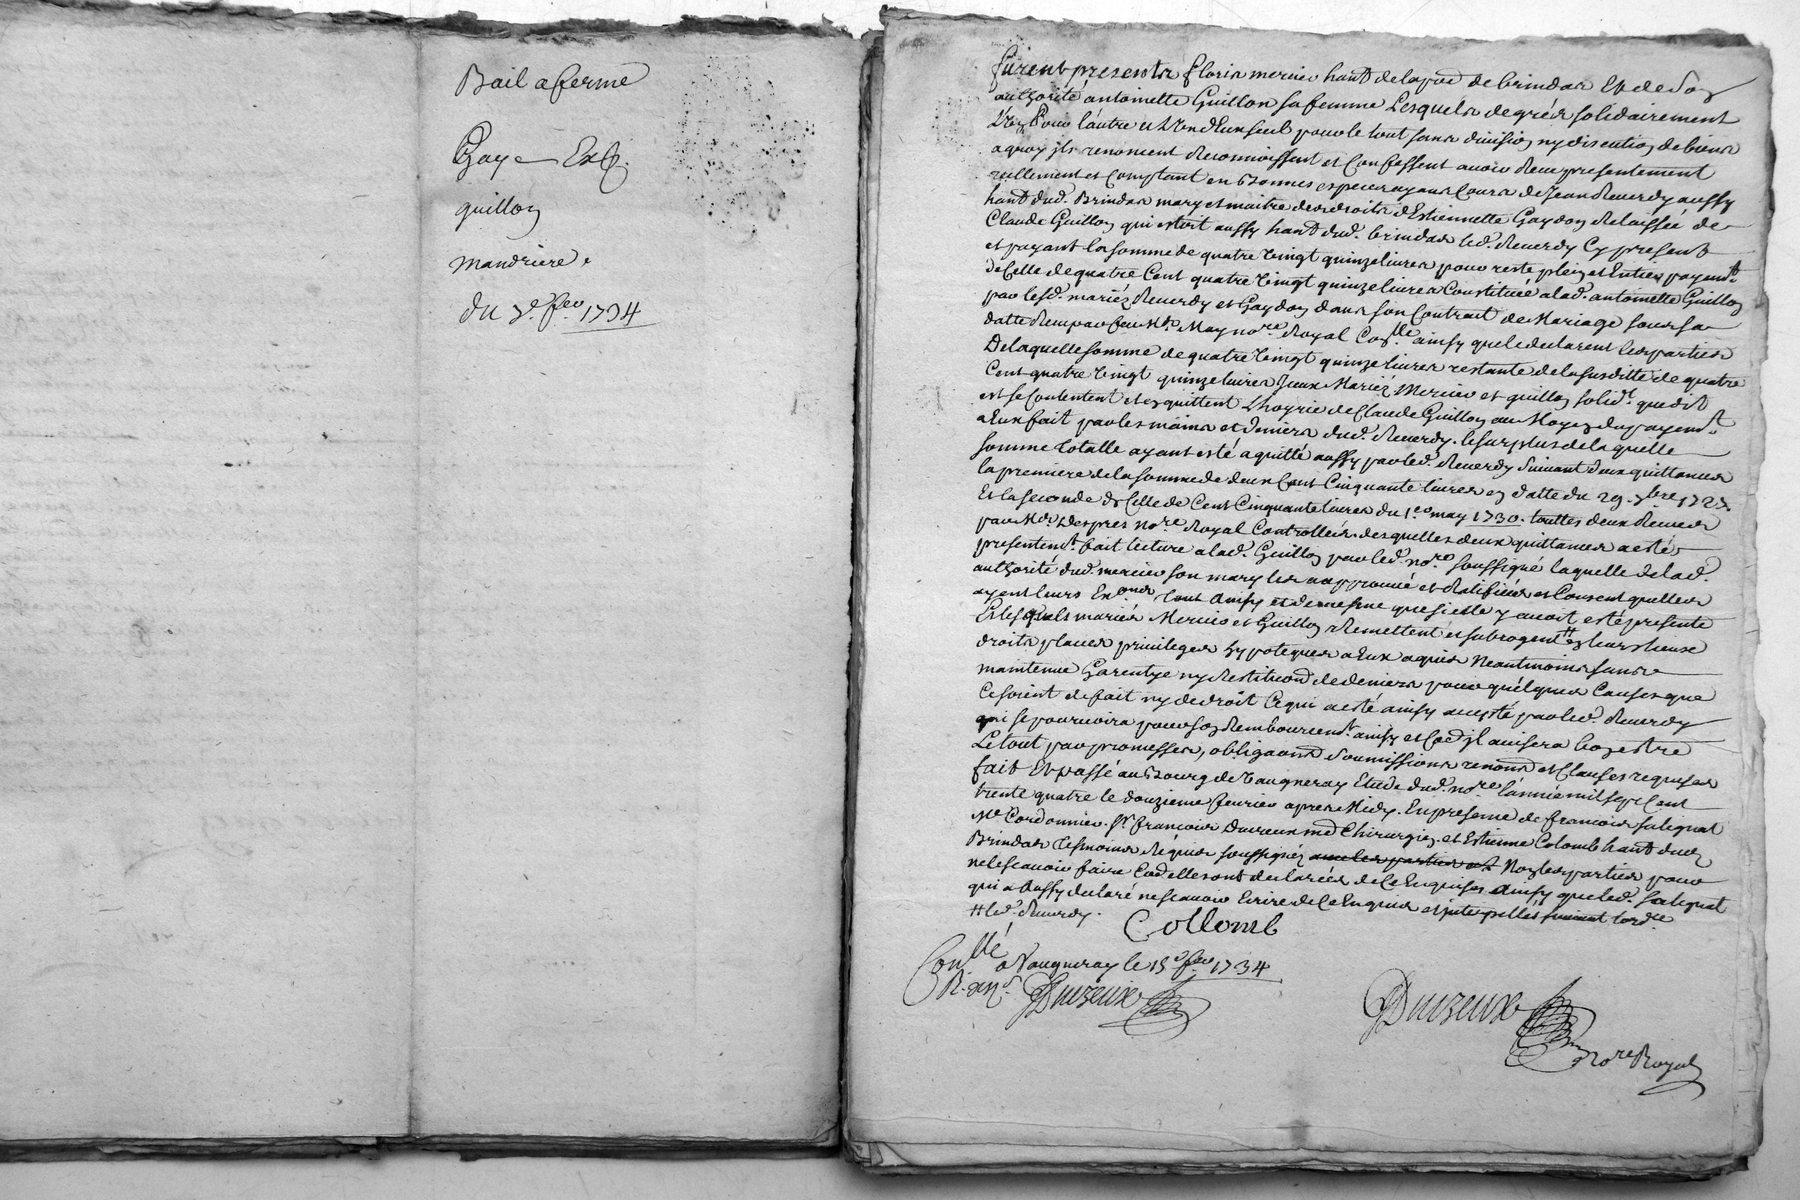 Bail a ferme
Gaye Exp.
guillon
mandriere
du 3e. fev. 1734
furent presents floris mercier hant de la par de brindas Et de Son
authorité antoinette Guillon sa femme Lesquels de grés solidairement
L'un Pour láutre et L'un d'Eux seul pour le tout sans division ny discution de biens
a quoy jls renoncent Reconnoissent et Confessent avoir Reçu presentement
reellement et Comptant en Bonnes especes ayans Cours de Jean Reverdy aussy
hant dud. Brindas mary et maitre des droits d'Estiennette Gaydon delaissée de
Claude Guillon qui estoit aussy hant dud. brindas led. Reverdy Cy present
et payant la somme de quatre vingt quinze livres pour reste plein et Entier payemt.
de Celle de quatre Cent quatre vingt quinze livres Constituée a lad. antoinette Guillon
par lesd. mariéz Reverdy et Gaydon dans son Contrat de Mariage sous sa
datte Reçu par feu Me. May nore. Royal Conlle. ainsy que le declarent les parties
De laquelle somme de quatre vingt quinze livres restante de la susditte de quatre
Cent quatre vingt quinze livres Jceux Mariéz Mercier et guillon solidt. que dit
est se Contentent et en quittent L'hoyrie de Claude Guillon au Moyen du payemt.
a Eux fait par les mains et deniers dud. Reverdy. le surplus de laquelle
somme totalle ayant esté aquitté aussy par led. Reverdy Suivant deux quittances
la premiere de la somme de deux Cent Cinquante livres en datte du 29. 7bre 1727.
Et la seconde de Celle de Cent Cinquante livres du 1er may 1730. touttes deux Reçues
par Me. Despres nore. Royal Controlleés. desquelles deux quittances a esté
presentemt. fait lecture a lad. Guillon par led. nore soussigné laquelle de lad.
authorité dud. mercier son mary les a approuvé et Ratifiées et Consent quelles
ayent leurs Exons tout Ainsy et de mesme que si elle y avoit esté presente
Et lesquels mariés Mercier et Guillon Remettent et subrogent # en leurs lieux
droits places privileges hypoteques a Eux aquis Neantmoins sans
maintenue Garentye ny Restitution de deniers pour quélques Causes que
Ce soient de fait ny de droit Ce qui a esté ainsy accepté par led. Reverdy
qui se pourvoira pour son Remboursemt. ainsy et Co͞e jl avisera bon estre
Le tout par promesses, obligaons Soumissions renons et Clauses requises
fait Et passé au Bourg de Vaugneray Etude dud. nore lánnée mil sept Cent
trente quatre le douzieme fevrier apres Midy. En presence de francois salignat
Me Cordonnier. Sr. francois Dureux md Chirurgien et Estienne Colomb hant dud.
Brindas tesmoins Requis soussignéz avec les parties Non les parties pour
ne le scavoir faire Co͞e elles ont declarées de Ce Enquises Ainsy que led. salignat
qui a Aussy declaré ne scavoir Ecrire de Ce Enquis et jnterpellés suivant lorde
# led. Reverdy.
Collomb
Conllé a Vaugneray le 15e fev. 1734
R.
Duzeux
Duzeux
nore Royal